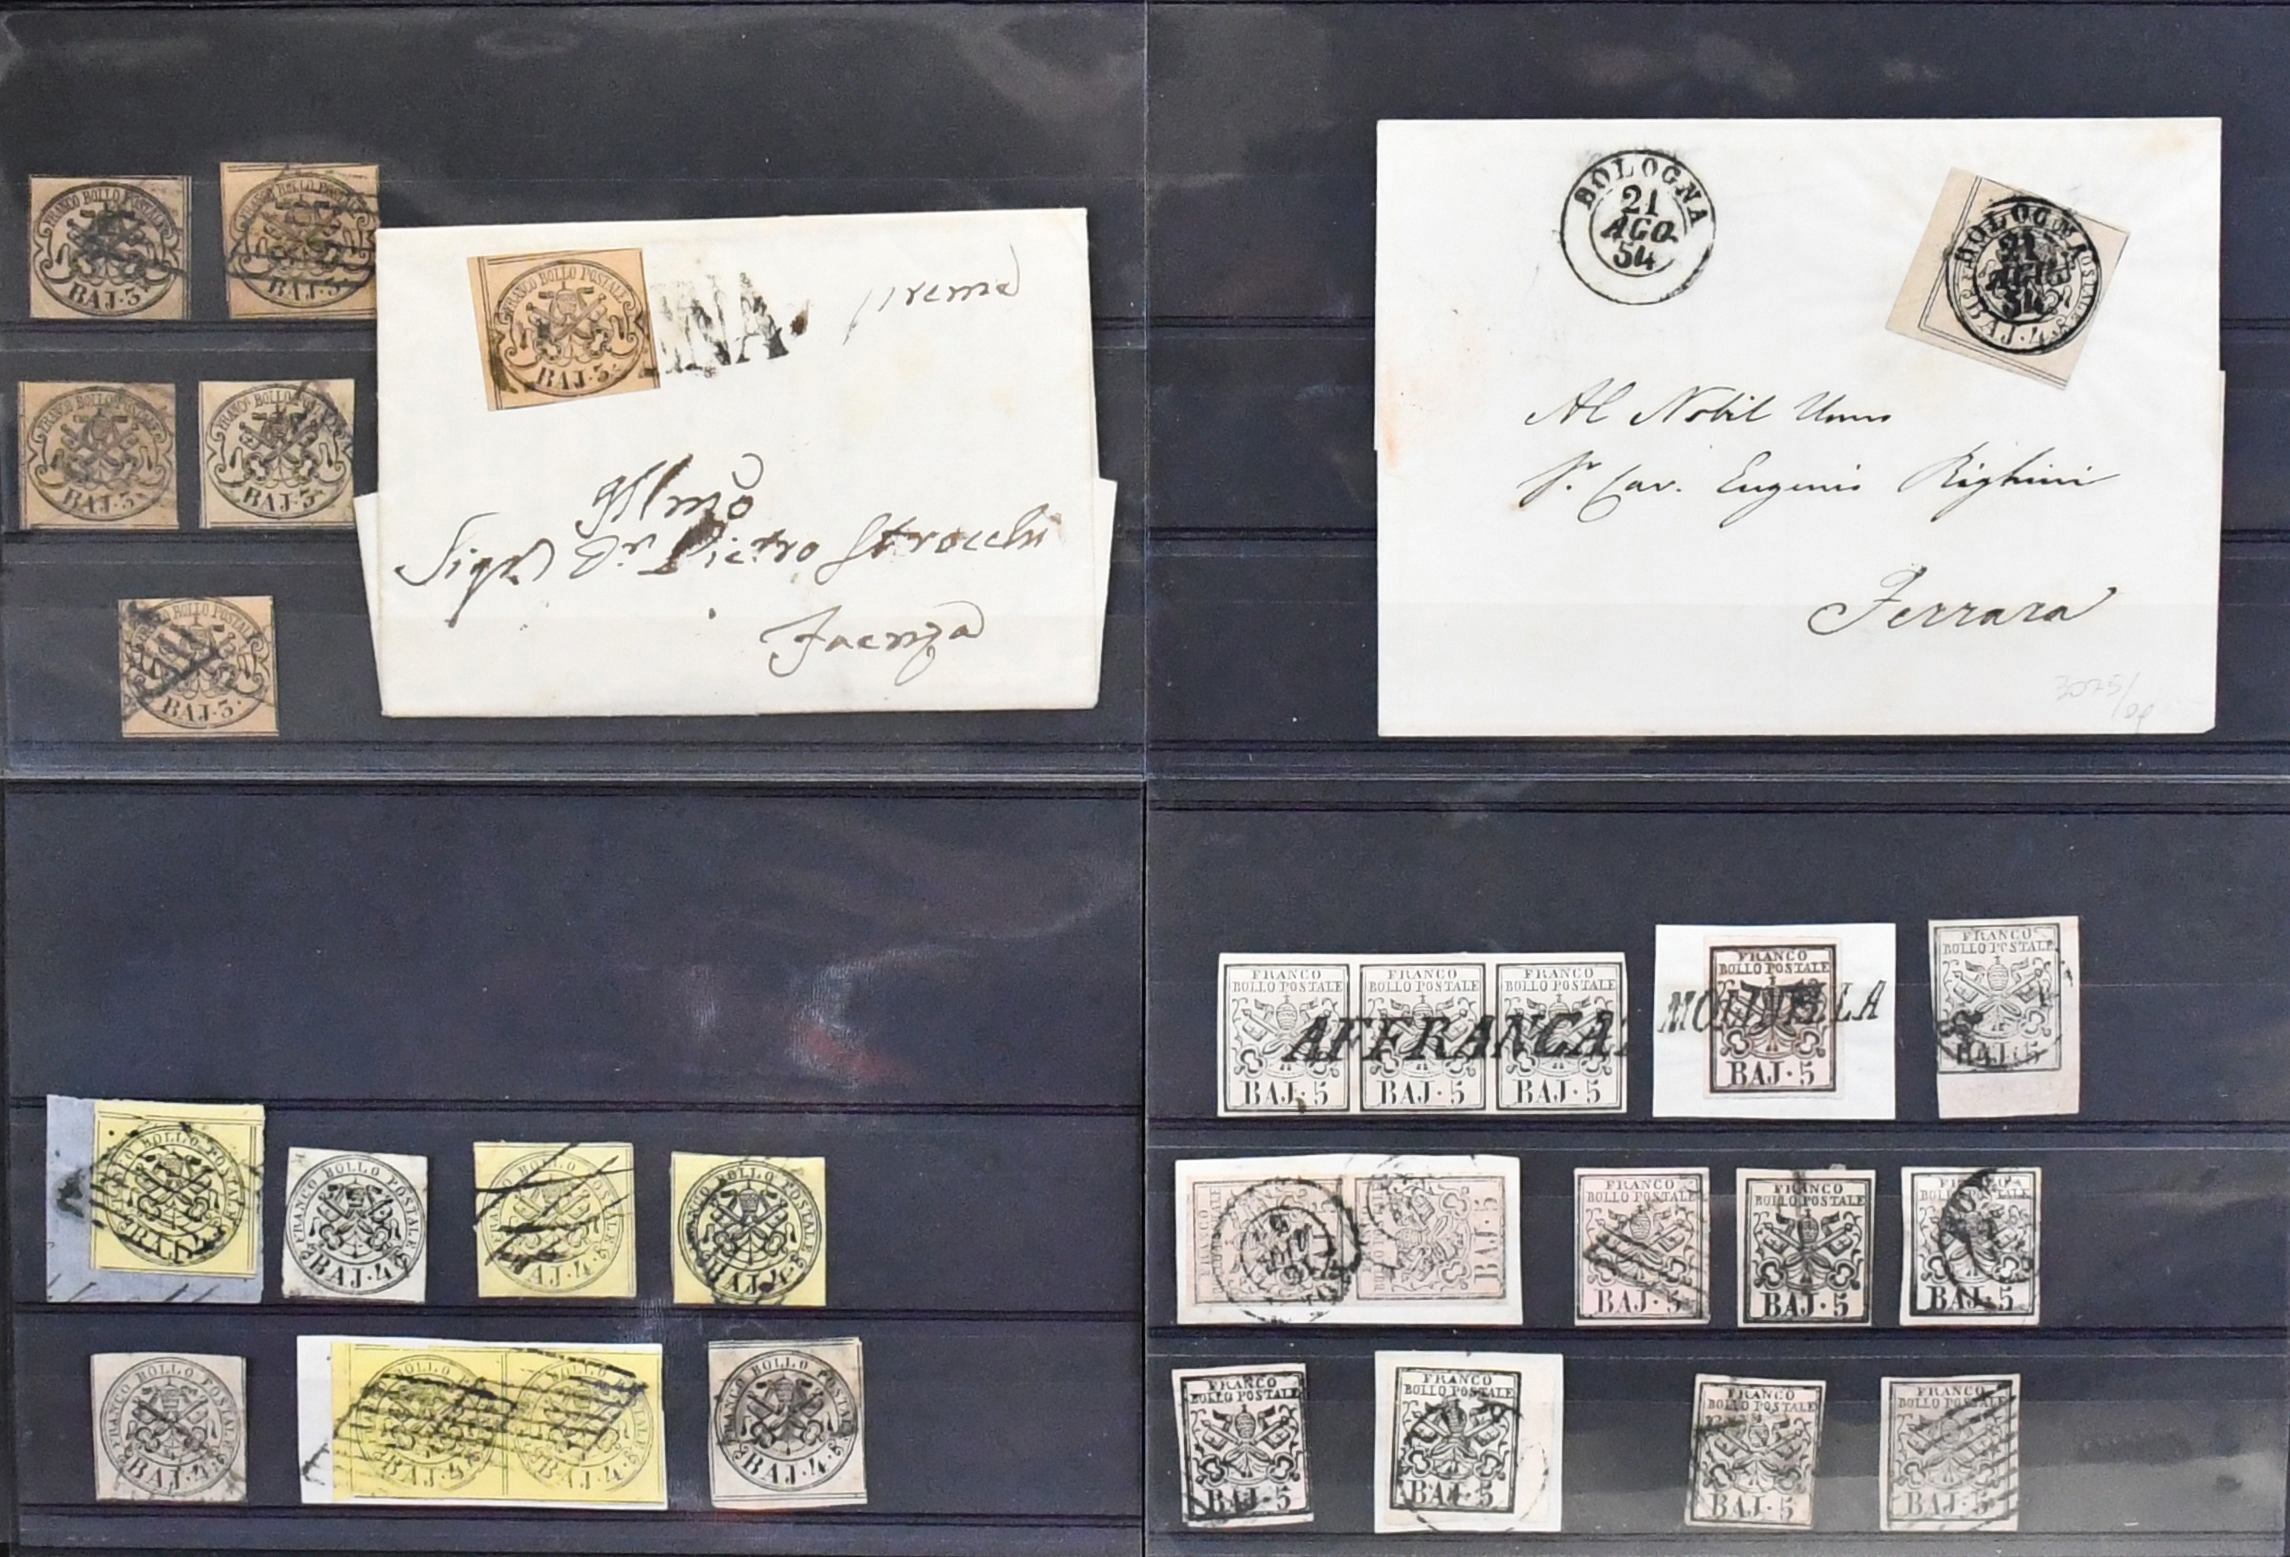 FRANCO BOLLO POSTALE
BAJ·3
FRANCO BOLLO POSTALE
BAJ·3
FRANCO BOLLO POSTALE
BAJ·3
FRANCO BOLLO POSTALE
BAJ·3
FRANCO BOLLO POSTALE
BAJ·3
FRANCO BOLLO POSTALE
BAJ·3
Illmo
Sigr Dr Pietro Strocchi
Faenza
BOLOGNA
21
AGO
54
BOLOGNA
21
AGO
54
BAJ·4
Al Nobil Uomo
Sr. Cav. Eugenio Righini
Ferrara
3025/
FRANCO BOLLO POSTALE
BAJ·4
FRANCO BOLLO POSTALE
BAJ·4
FRANCO BOLLO POSTALE
BAJ·4
FRANCO BOLLO POSTALE
BAJ·4
FRANCO BOLLO POSTALE
BAJ·4
BOLLO
BAJ·4
BOLLO
BAJ·4
FRANCO BOLLO POSTALE
BAJ·4
FRANCO BOLLO POSTALE
BAJ·5
FRANCO BOLLO POSTALE
BAJ·5
FRANCO BOLLO POSTALE
BAJ·5
AFFRANCA
FRANCO BOLLO POSTALE
BAJ·5
FRANCO BOLLO POSTALE
BAJ·5
BAJ·5
FRANCO BOLLO POSTALE
BAJ·5
FRANCO BOLLO POSTALE
BAJ·5
FRANCO BOLLO POSTALE
BAJ·5
FRANCO BOLLO POSTALE
BAJ·5
FRANCO BOLLO POSTALE
BAJ·5
FRANCO BOLLO POSTALE
BAJ·5
FRANCO BOLLO POSTALE
BAJ·5